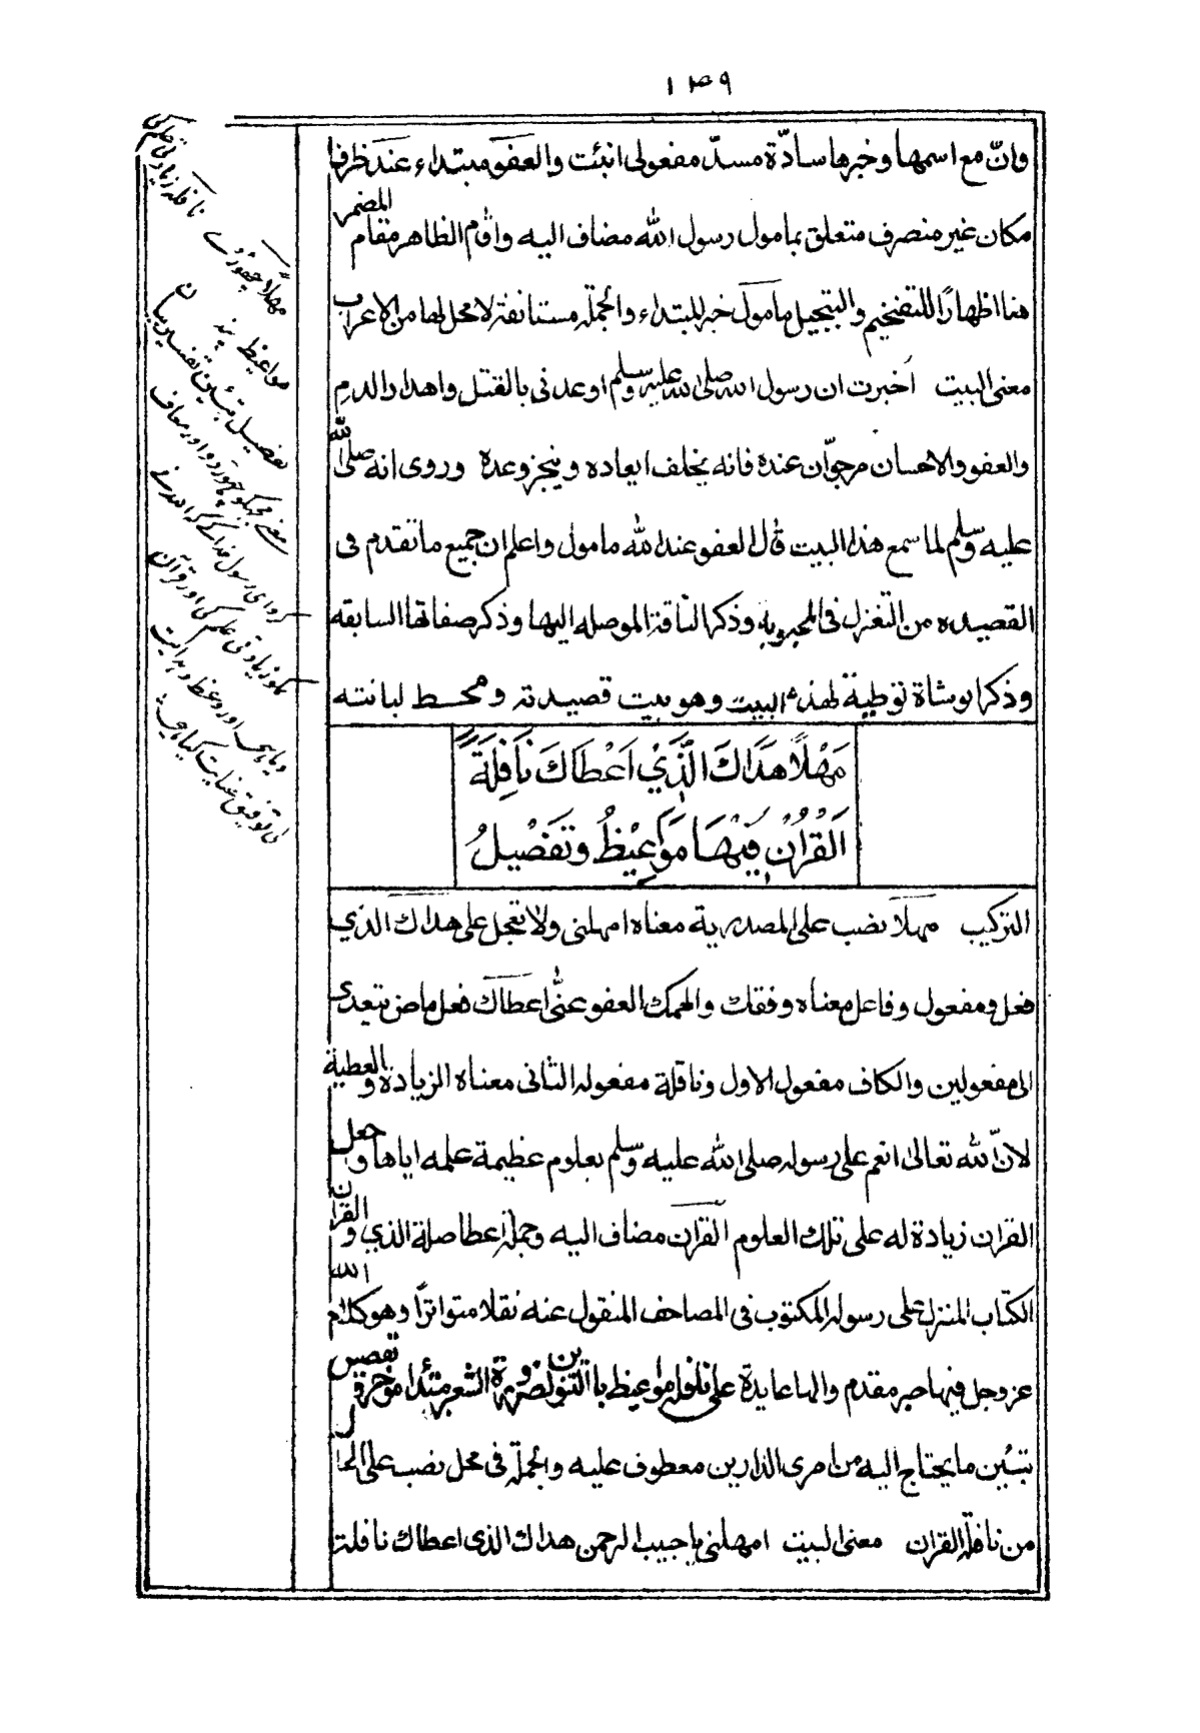 ١٣٩
وانّ مع اسمها وخبرها سادّة مسدّ مفعولى انبئت والعفو مبتداء عند ظرف
مكان غير منصرف متعلق بمامول رسول الله مضاف اليه واقام الظاهر مقام المضمر
هنا اظهارًا للتفخيم والتبجيل مامول خبر للمبتداء والجملة مستانفة لا محل لها من الاعراب
معنى البيت اخبرت ان رسول الله صلى الله عليه وسلم اوعدنى بالقتل واهدار الدم
والعفو والاحسان مرجوّان عنده فانه يخلف ايعاده وينجز وعده وروى انه صلى الله
عليه وسلم لما سمع هذا البيت قال العفو عند الله مامول واعلم ان جميع ما تقدم فى
القصيده من التغزل فى المحبوبه وذكر الناقة الموصله اليها وذكر صفاتها السابقه
وذكر الوشاة توطية لهذه البيت وهو بيت قصيدته ومحط لبانته
مَهْلًا هَدَاكَ الَّذِيْ اَعْطَاكَ نَافِلَةَ
الْقُرْاٰنِ فِيْهَا مَوَاعِيْظُ وَتَفْصِيْلُ
التركيب مهلا نصب على المصدرية معناه امهلنى ولا تعجل على هداك الذي
فعل ومفعول وفاعل معناه وفقك والهمك العفو عنّى اعطاك فعل ماض يتعدى
الى مفعولين والكاف مفعول الاول ونافلة مفعوله الثانى معناه الزيادة والعطية
لانّ الله تعالى انعم على رسوله صلى الله عليه وسلم بعلوم عظيمة علمه اياها وجعل
القران زيادة له على تلك العلوم القران مضاف اليه وجملة اعطا صلة الذي والقران
الكتاب المنزل على رسوله المكتوب فى المصاحف المنقول عنه نقلا متواترًا وهو كلام الله
عز وجل فيها خبر مقدم والها عايدة على نافلة مواعيظ بالتنوين لضرورة الشعر مبتدا موخر وتفصيل
تبئين ما يحتاج اليه من امرى الدارين معطوف عليه والجملة فى محل نصب على الحال
من نافلة القران معنى البيت امهلنى يا حبيب الرحمن هداك الذى اعطاك نافلت
مهلًا چھوڑے نافلہ زیادتی علم کی
مواعيظ پند
تفصيل تبئين تفسير بيان
معنے مجکو چھوڑ دو اور معاف
کرو اى رسول خدا کے کہ اللہ نے
تمکو زیادتی علم کی اور قرآن
دیا ہی اور وعظ و ہدایت
کی توفیق عنایت کیا ہی